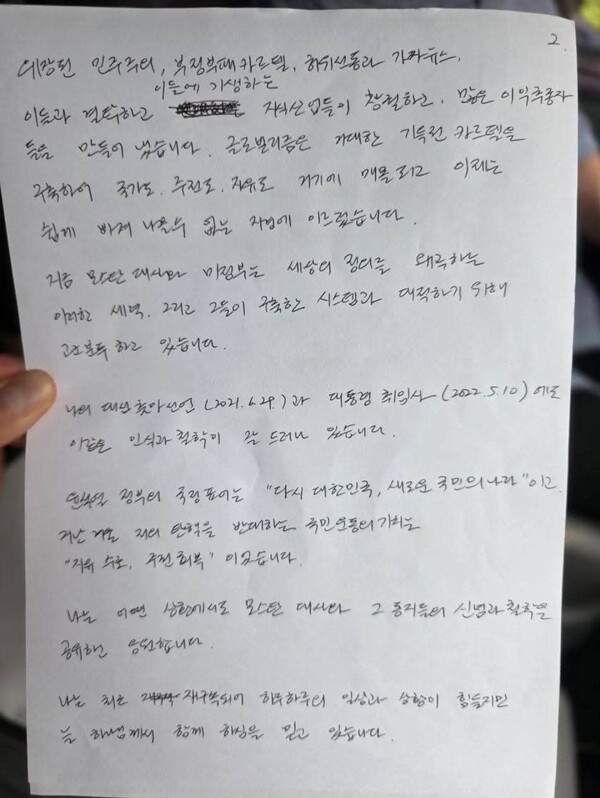 2.
위장된 민주주의, 부정부패 카르텔, 허위선동과 가짜뉴스,
이들에 기생하는
이들과 결탁하고 지식산업들이 창궐하고, 많은 이익추종자
들을 만들어 냈습니다. 글로벌리즘은 거대한 기득권 카르텔을
구축하여 국가도, 주권도, 자유도 거기에 매몰되고 이제는
쉽게 빠져 나올 수 없는 지경에 이르렀습니다.
지금 모스탄 대사와 미정부는 세상의 정의를 왜곡하는
이러한 세력, 그리고 그들이 구축한 시스템과 대적하기 위해
고군분투 하고 있습니다.
나의 대선 출마선언 (2021.6.29.)과 대통령 취임사 (2022.5.10)에도
이같은 인식과 철학이 잘 드러나 있습니다.
윤석열 정부의 국정표어는 "다시 대한민국, 새로운 국민의 나라"이고,
지난 겨울 저의 탄핵을 반대하는 국민운동의 기치는
"자유 수호, 주권 회복" 이었습니다.
나는 어떤 상황에서도 모스탄 대사와 그 동지들의 신념과 철학을
공유하고 응원합니다.
나는 최근 재구속되어 하루하루의 일상과 상황이 힘들지만
늘 하나님께서 함께 하심을 믿고 있습니다.